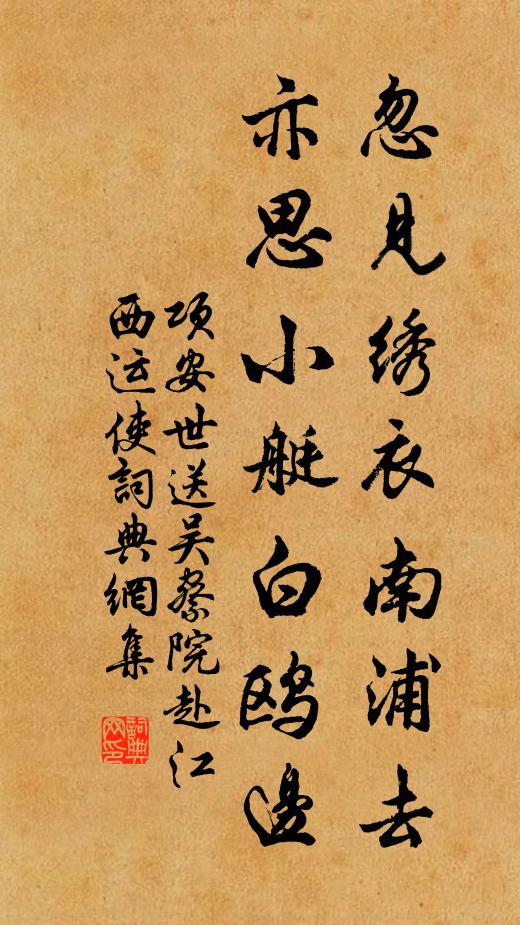 忽见绣衣南浦去
亦思小艇白鸥邊
项安世送吴察院赴江
西运使詞典網集
詞典
网印